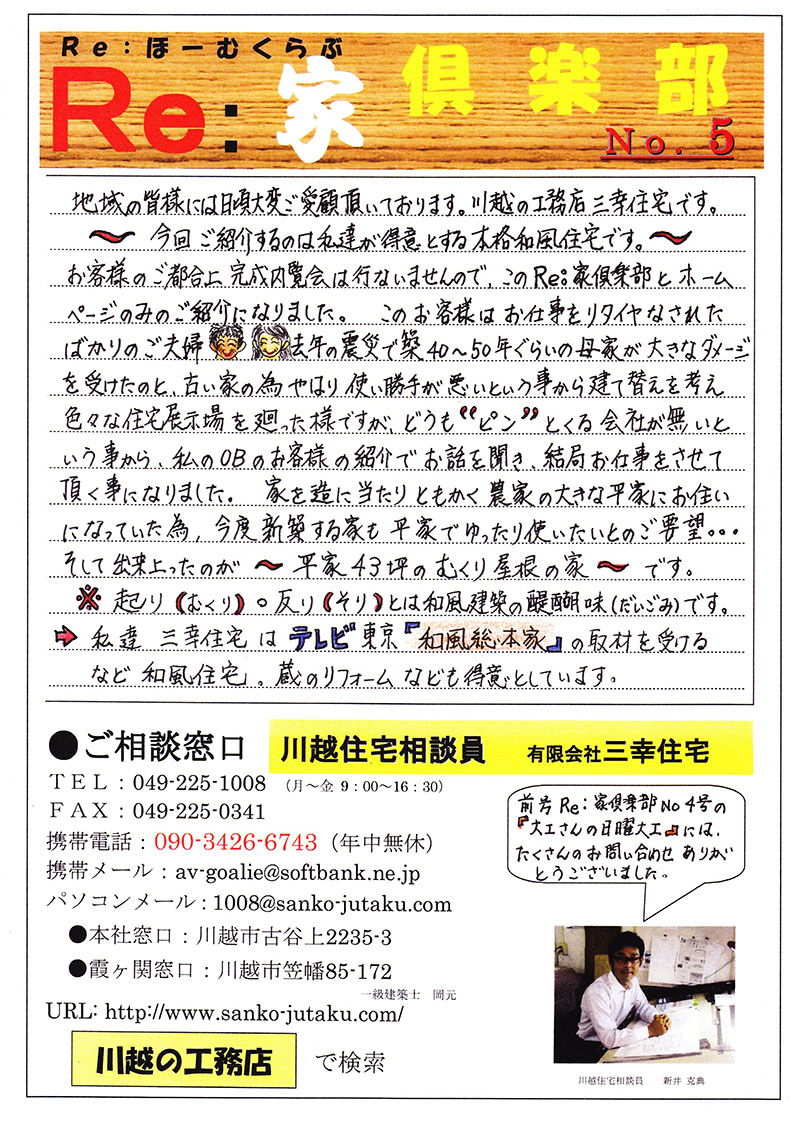 Re:ほーむくらぶ
Re:家 倶楽部
No. 5
地域の皆様には日頃大変ご愛顧頂いております。川越の工務店三幸住宅です。
～ 今回ご紹介するのは私達が得意とする本格和風住宅です。～
お客様のご都合上完成内覧会は行ないませんので、このRe:家倶楽部とホーム
ページのみのご紹介になりました。 このお客様はお仕事をリタイヤなされた
ばかりのご夫婦 去年の震災で築40～50年ぐらいの母家が大きなダメージ
を受けたのと、古い家の為やはり使い勝手が悪いという事から建て替えを考え
色々な住宅展示場を廻った様ですが、どうも“ピン”とくる会社が無いと
いう事から、私のOBのお客様の紹介でお話を聞き、結局お仕事をさせて
頂く事になりました。 家を造に当たりともかく農家の大きな平家にお住い
になっていた為、今度新築する家も平家でゆったり使いたいとのご要望・・・
そして出来上ったのが ～ 平家43坪のむくり屋根の家 ～ です。
※ 起り(むくり)。反り(そり)とは和風建築の醍醐味(だいごみ)です。
⇨ 私達 三幸住宅は テレビ東京『和風総本家』の取材を受ける
など 和風住宅。蔵のリフォームなども得意としています。
●ご相談窓口 川越住宅相談員 有限会社三幸住宅
TEL:049-225-1008 (月～金 9:00～16:30)
FAX:049-225-0341
携帯電話:090-3426-6743 (年中無休)
携帯メール:av-goalie@softbank.ne.jp
パソコンメール:1008@sanko-jutaku.com
●本社窓口:川越市古谷上2235-3
●霞ヶ関窓口:川越市笠幡85-172
一級建築士 岡元
URL: http://www.sanko-jutaku.com/
川越の工務店 で検索
前号Re:家倶楽部No4号の
『大工さんの日曜大工』には、
たくさんのお問い合わせ ありが
とうございました。
川越住宅相談員 新井 克典